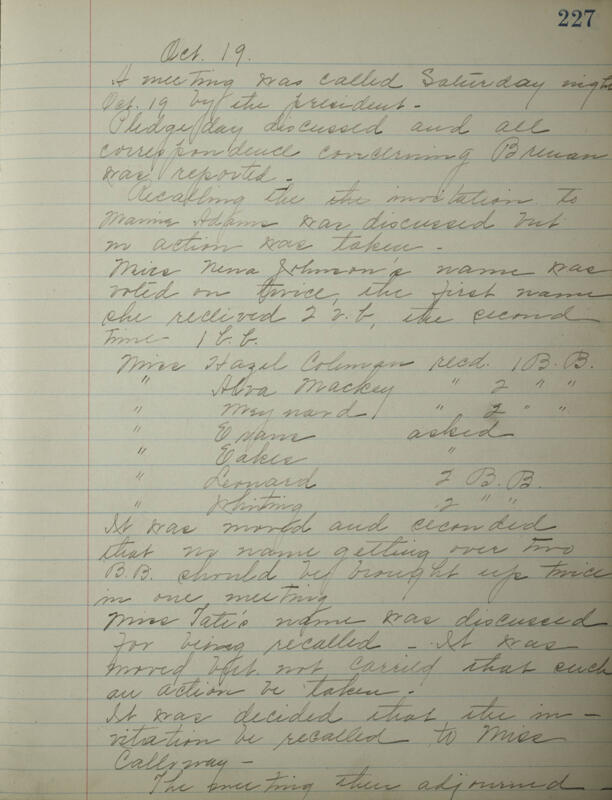 227
Oct. 19.
A meeting was called Saturday night
Oct. 19 by the president.
Pledge day discussed and all
correspondence concerning Brenan
was reported.
Recalling the the invitation to
Adams was discussed but
no action was taken.
Miss Nena Johnson's name was
voted on twice, the first name
she recieved 2 b.b, the second
time 1 b.b.
Miss Hazel Coleman recd. 1 B. B.
" Alva Mackey " 2 " "
" Meynard " 2 " "
" Evans asked
" Eakes "
" Leonard 2 B. B.
" Whiting 2 " "
It was moved and seconded
that no name getting over two
B.B. should be brought up twice
in one meeting
Miss Tate's name was discussed
for being recalled - It was
moved but not carried that such
an action be taken.
It was decided that the in-
vitation be recalled to Miss
Calloway -
The meeting then adjourned -